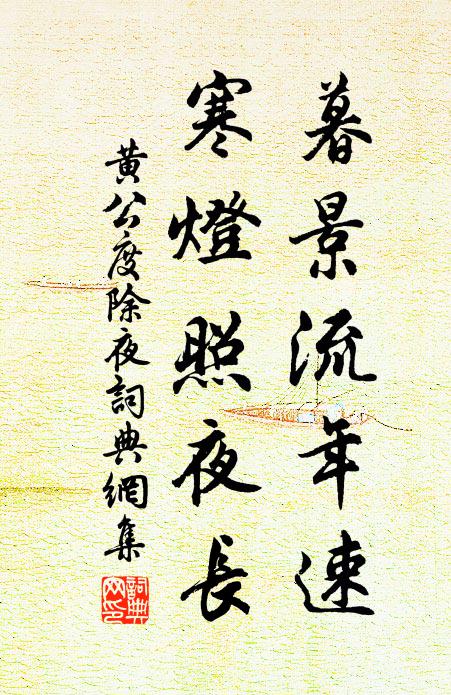 暮景流年速
寒燈照夜長
黃公度除夜詞典網集
詞典网印